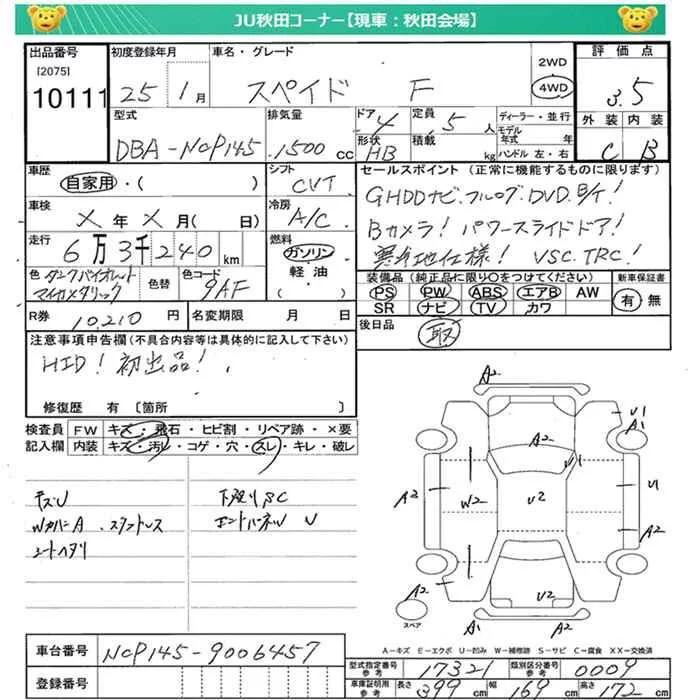 JU秋田コーナー【現車：秋田会場】
出品番号
[2075]
10111
初度登録年月
25年1月
車名・グレード
スペイド F
2WD
4WD
評価点
3.5
型式
DBA-NCP145
排気量
1500cc
ドア
4
形状
HB
定員
5人
積載
kg
ディーラー・並行
モデル
年式 年
ハンドル 左・右
外装 内装
C B
車歴
自家用・( )
シフト
CVT
セールスポイント（正常に機能するものに限ります）
GHDDナビ.フルセグ.DVD.B/T!
Bカメラ! パワースライドドア!
寒冷地仕様! VSC.TRC!
車検
X年X月( 日)
冷房
A/C
走行
6万3千240km
燃料
ガソリン
軽油
( )
色 ダークバイオレット
マイカメタリック
色替
色コード
9AF
装備品（純正品に限り○をつけてください）
PS PW ABS エアB AW
SR ナビ TV カワ
新車保証書
有 無
R券
10,210円
名変期限 月 日
後日品
取
注意事項申告欄（不具合内容等は具体的に記入して下さい）
HID! 初出品!
修復歴 有 〔箇所 〕
検査員
記入欄
FW キズ・飛石・ヒビ割・リペア跡・×要
内装 キズ・汚レ・コゲ・穴・スレ・キレ・破レ
WカバーA.
シートヘタリ
下廻りSC
U
A2
U1
A1
A2
U1
A2
W2
U2
U1
A2
A2
U2
A1
A2
スペア
A−キズ E−エクボ U−凹み W−補修跡 S−サビ C−腐食 XX−交換済
車台番号
NCP145-9006457
登録番号
型式指定番号
参考
17321
類別区分番号
参考
0009
車庫証明用
参考
長さ 399cm
幅 169cm
高さ 172cm